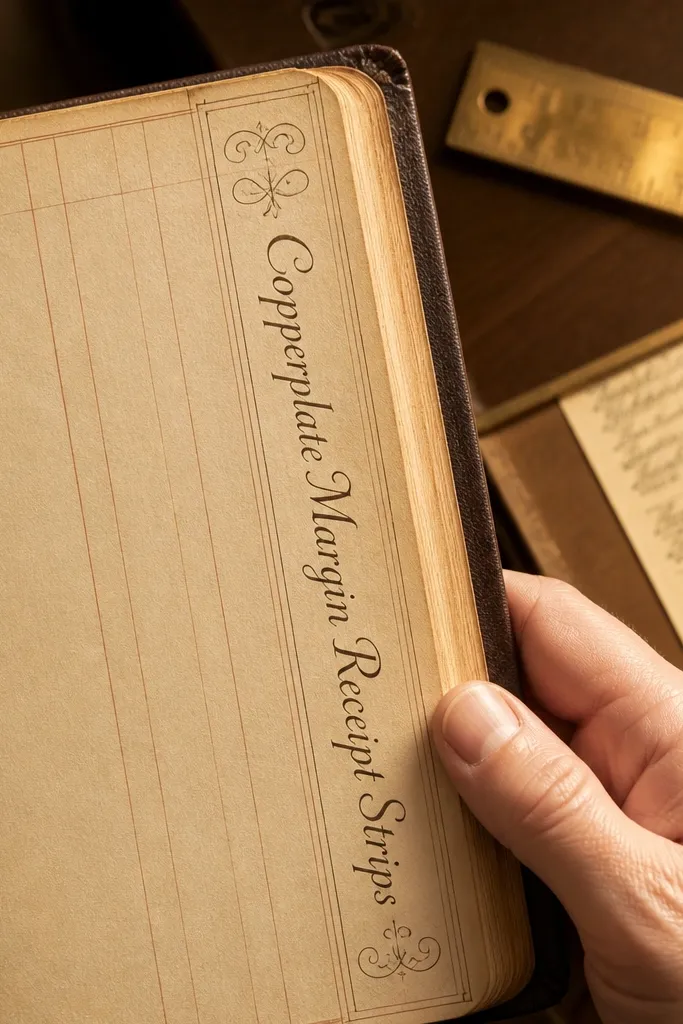 Copperplate Margin Receipt Strips